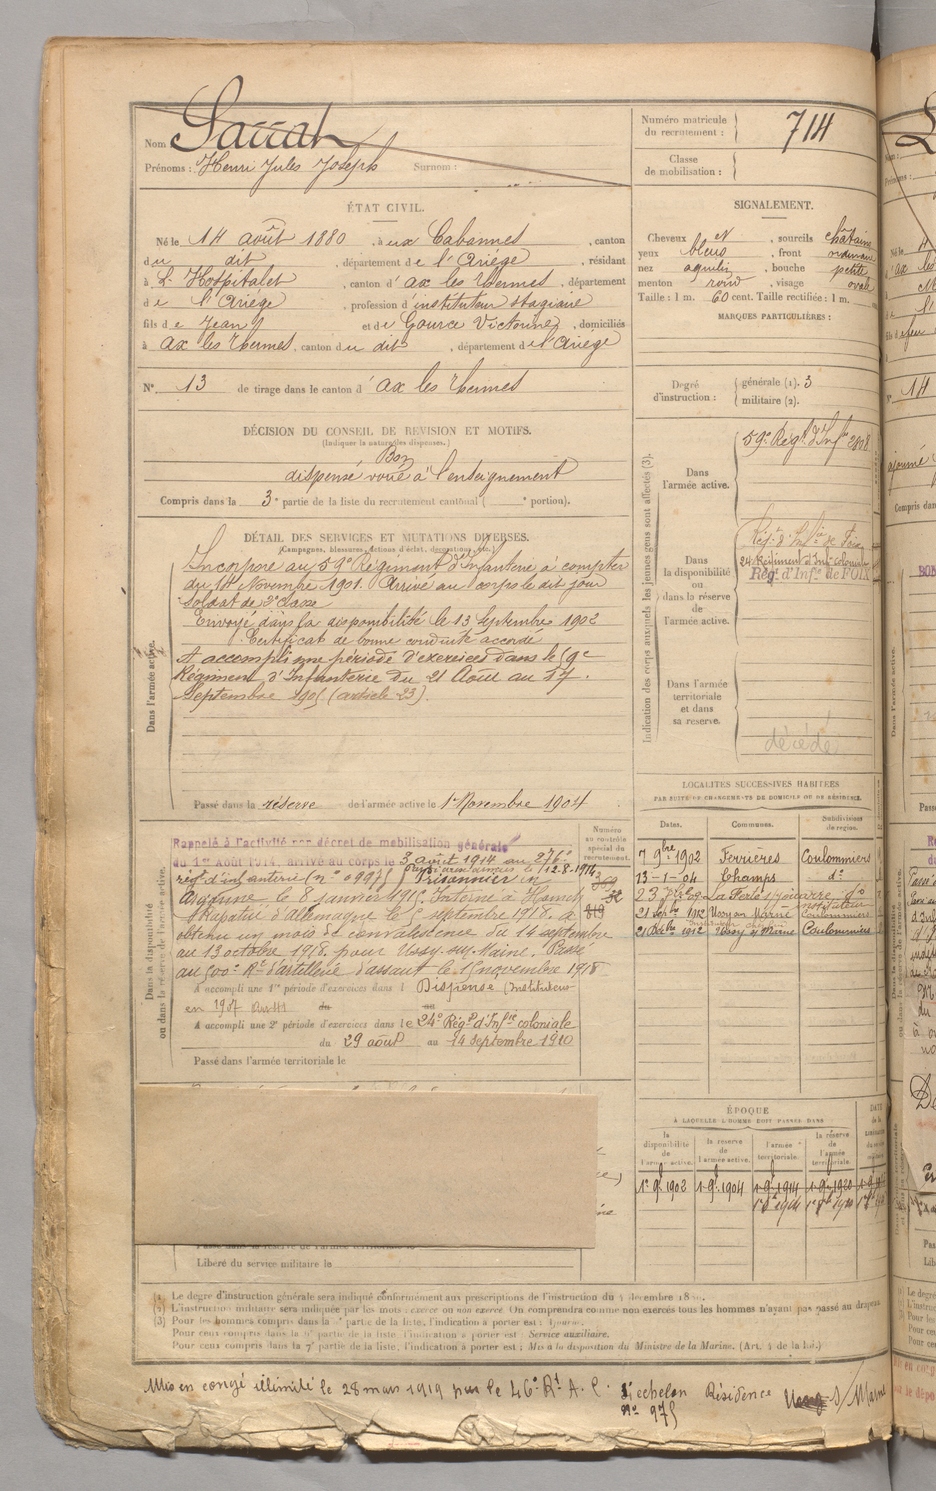 Nom : Sarrat
Prénoms : Henri Jules Joseph Surnom :
Numéro matricule du recrutement : 714
Classe de mobilisation :
ÉTAT CIVIL.
Né le 14 août 1880, à aux Cabannes, canton
du dit, département de l'Ariége, résidant
à L'Hospitalet, canton d'ax les thermes, département
de l'Ariège, profession d'instituteur stagiaire
fils de Jean et de Gource Victorine, domiciliés
à ax les thermes, canton du dit, département de l'Ariège
N° 13 de tirage dans le canton d'ax les thermes
SIGNALEMENT.
Cheveux et, sourcils châtains
yeux bleus, front
nez aquilin, bouche petite
menton rond, visage ovale
Taille : 1 m. 60 cent. Taille rectifiée : 1 m.
MARQUES PARTICULIÈRES :
Degré d'instruction : générale (1). 3
militaire (2).
DÉCISION DU CONSEIL DE REVISION ET MOTIFS.
(Indiquer la nature des dispenses.)
Bon
dispensé voué à l'enseignement
Compris dans la 3e partie de la liste du recrutement cantonal ( e portion).
DÉTAIL DES SERVICES ET MUTATIONS DIVERSES.
(Campagnes, blessures, actions d'éclat, décorations, etc.)
Dans l'armée active.
Incorporé au 59e Régiment d'Infanterie à compter
du 14 Novembre 1901. Arrivé au corps le dit jour
Soldat de 2e classe
Envoyé dans la disponibilité le 13 Septembre 1902
Certificat de bonne conduite accordé
A accompli une période d'exercices dans le 59e
Régiment d'Infanterie du 21 Août au 17
Septembre 1905 (article 23)
Passé dans la réserve de l'armée active le 1er Novembre 1904
Indication des corps auxquels les jeunes gens sont affectés (3).
Dans l'armée active.
59e Régt d'Infie 2808
Dans la disponibilité ou dans la réserve de l'armée active.
Régt d'Infie de Foix
24e Régiment d'Infie coloniale
Régt d'Infie de FOIX
Dans l'armée territoriale et dans sa réserve.
décédé
Dans la disponibilité ou dans la réserve de l'armée active.
Rappelé à l'activité par décret de mobilisation générale
du 1er Août 1914, arrivé au corps le 3 août 1914 au 276e
régt d'infanterie (n° 099) Parti aux armées le 12-8-1914
Prisonnier en
Argonne le 8 janvier 1915. Interné à
Rapatrié d'Allemagne le 5 septembre 1918. a
obtenu un mois de convalescence du 14 septembre
au 13 octobre 1918 pour Ussy-sur-Marne. Passé
au 500e Rt d'artillerie d'assaut le 15 novembre 1918
Numéro au contrôle spécial du recrutement.
A accompli une 1re période d'exercices dans l Dispensé (Instituteur
en 1907 du au
A accompli une 2e période d'exercices dans le 24e Régt d'Infie coloniale
du 29 août au 14 Septembre 1910
Passé dans l'armée territoriale le
LOCALITÉS SUCCESSIVES HABITÉES
PAR SUITE DE CHANGEMENTS DE DOMICILE OU DE RÉSIDENCE.
Dates. Communes. Subdivisions de région.
7 9bre 1902 Ferrières Coulommiers
13-1-04 Champs do
La Ferté s/ Jouarre do
21 Septbre 1912 Ussy sur Marne Coulommiers
21 1912 Ussy s/ Marne Coulommiers
ÉPOQUE
À LAQUELLE L'HOMME DOIT PASSER DANS
la disponibilité de l'armée active. la réserve de l'armée active. l'armée territoriale. la réserve de l'armée territoriale.
1er 9bre 1902 1er 9bre 1904 1er 9bre 1914 1er 9bre 1920
Passé dans la réserve de l'armée territoriale le
Libéré du service militaire le
(1) Le degré d'instruction générale sera indiqué conformément aux prescriptions de l'instruction du 4 décembre
(2) L'instruction militaire sera indiquée par les mots : exercé ou non exercé. On comprendra comme non exercés tous les hommes n'ayant pas passé au drapeau
(3) Pour les hommes compris dans la partie de la liste, l'indication à porter est :
Pour ceux compris dans la partie de la liste, l'indication à porter est : Service auxiliaire.
Pour ceux compris dans la 7e partie de la liste, l'indication à porter est : Mis à la disposition du Ministre de la Marine. (Art. 4 de la loi.)
Mis en congé illimité le 28 mars 1919 par le 46e Rt A. C. échelon Résidence Ussy S/ Marne
n° 975